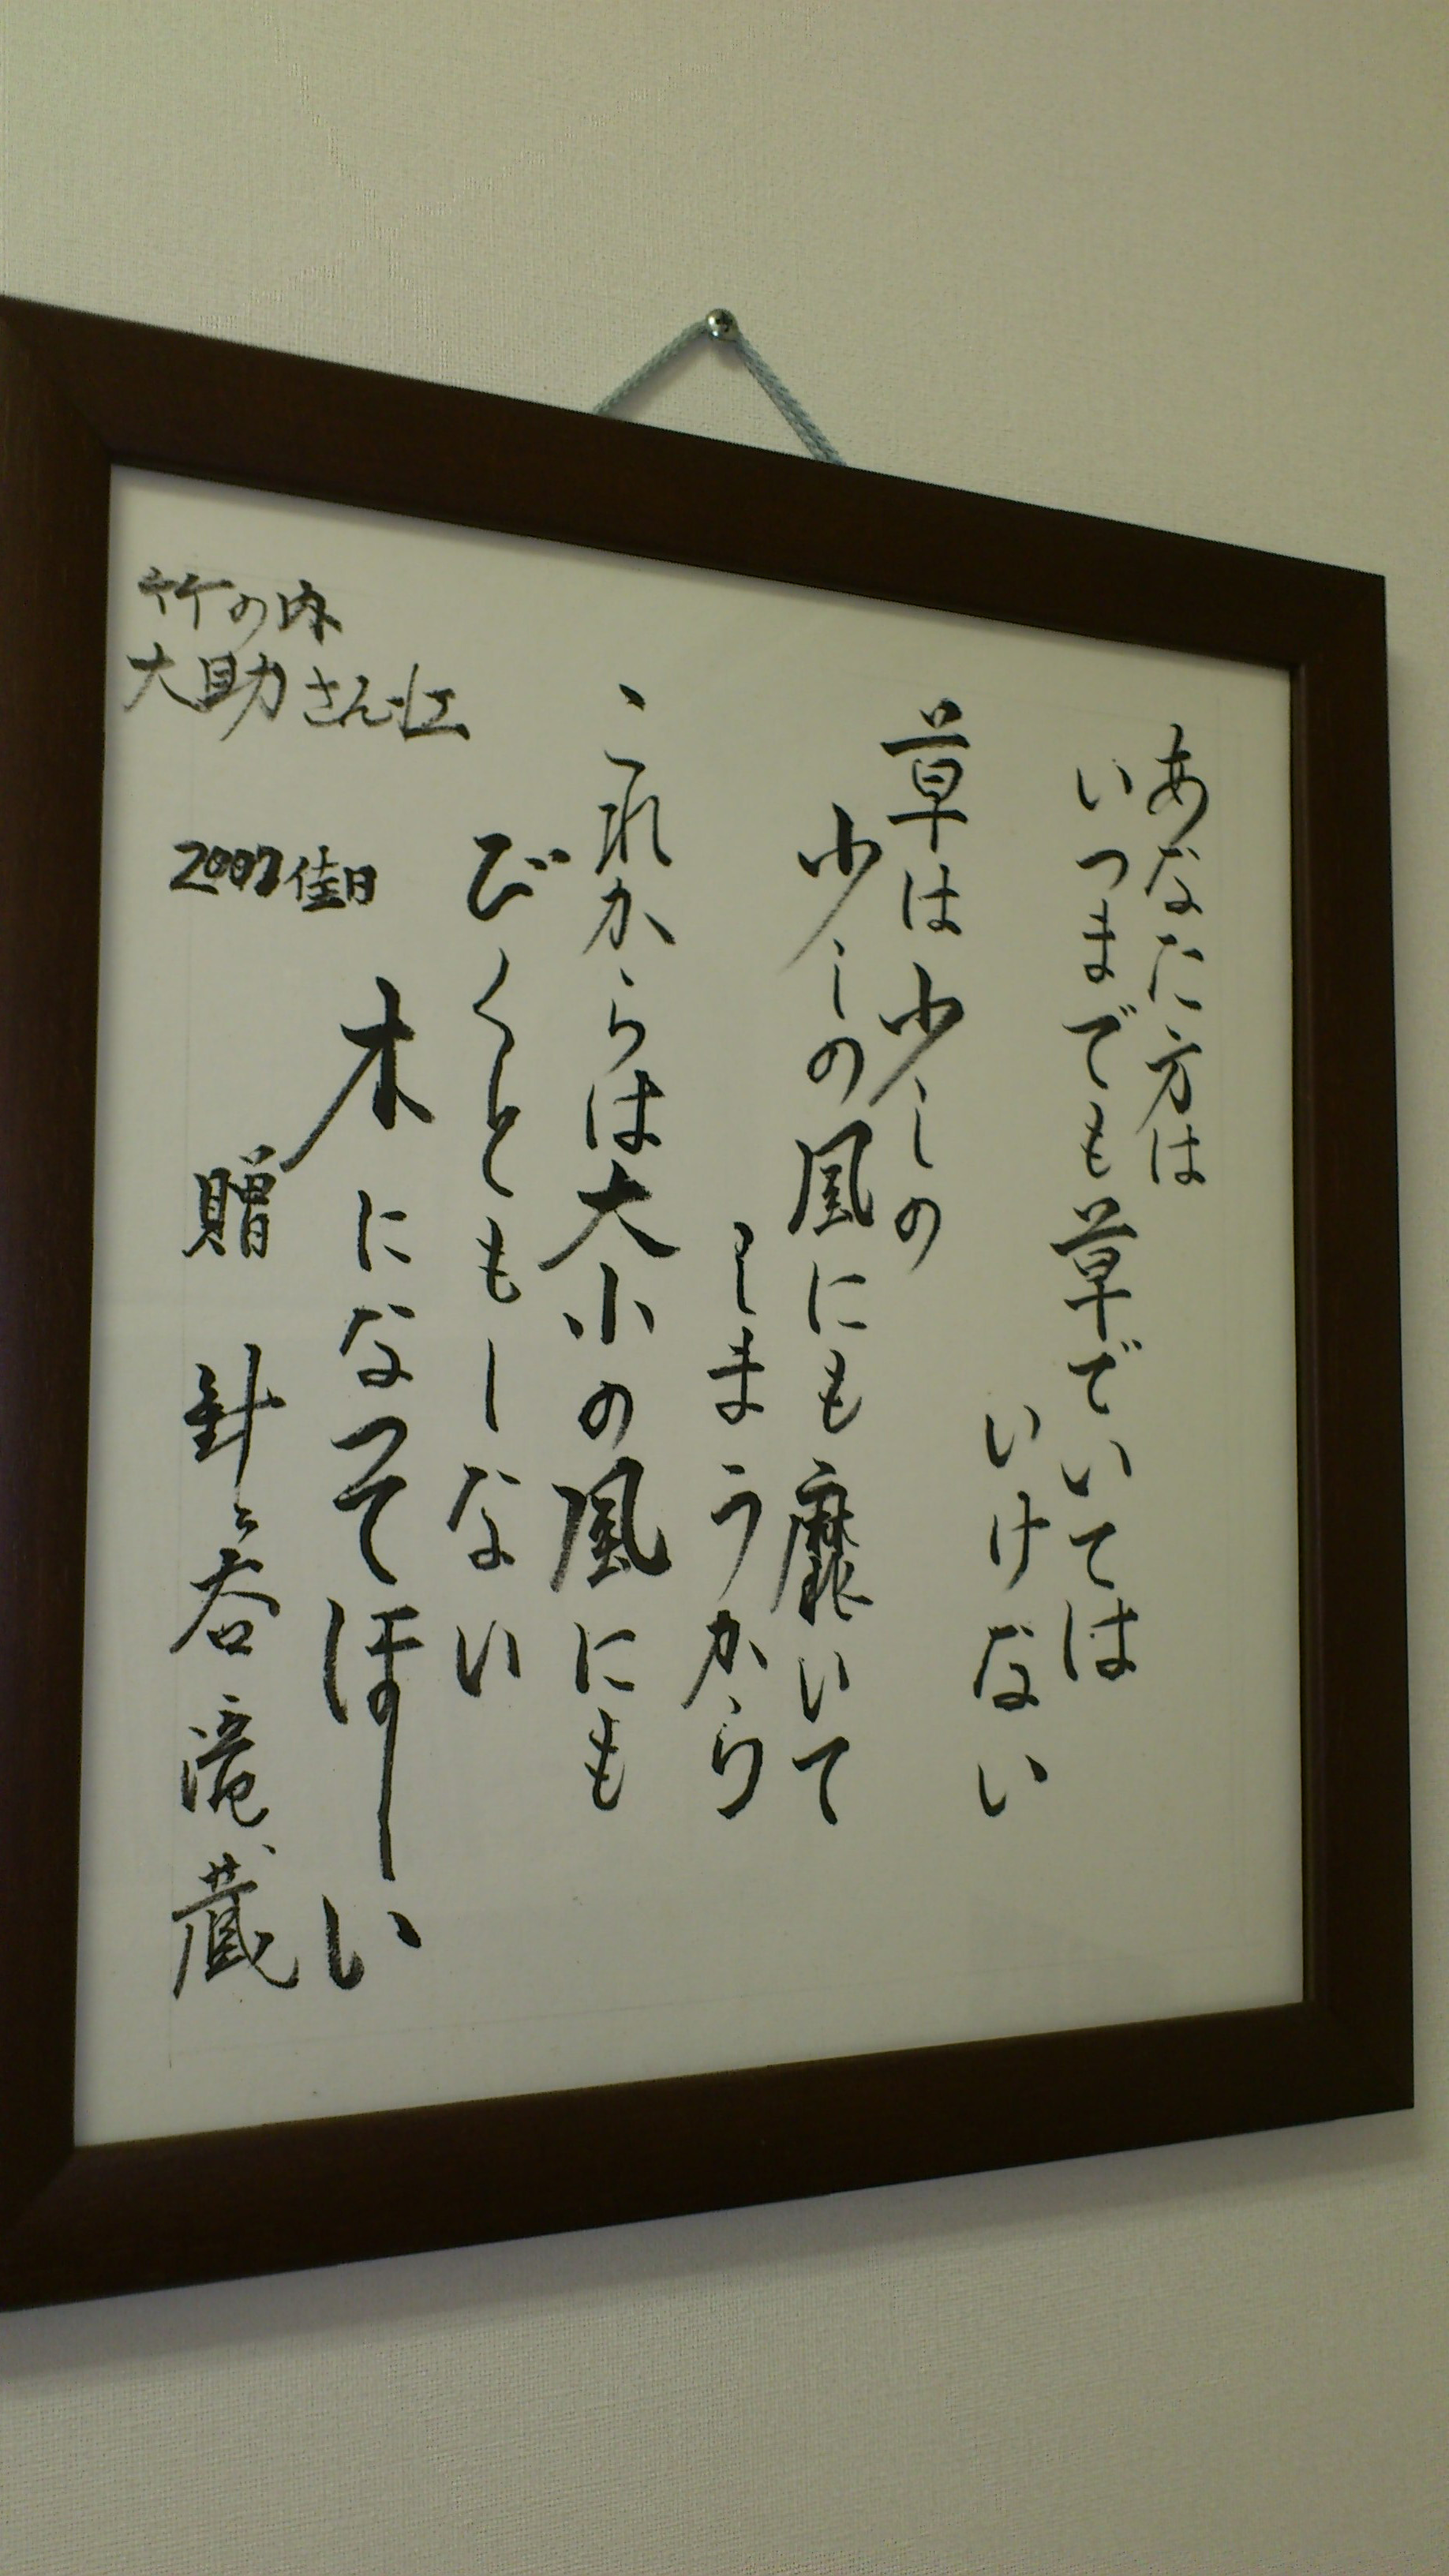 あなた方は
いつまでも草でいては
いけない
草は少しの
少しの風にも靡いて
しまうから
これからは大小の風にも
びくともしない
木になってほしい
贈 針ヶ谷滝蔵
2007佳日
竹の内
大助さん江